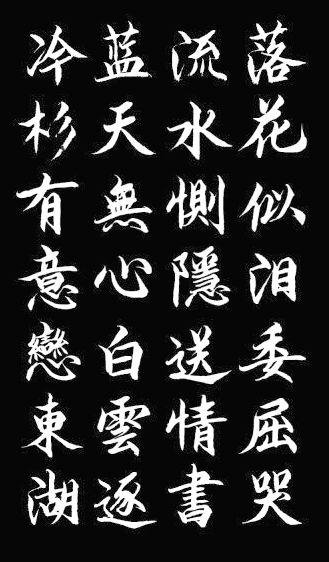 落花似泪委屈哭
流水惻隱送情書
蓝天無心白雲逐
冷杉有意戀東湖